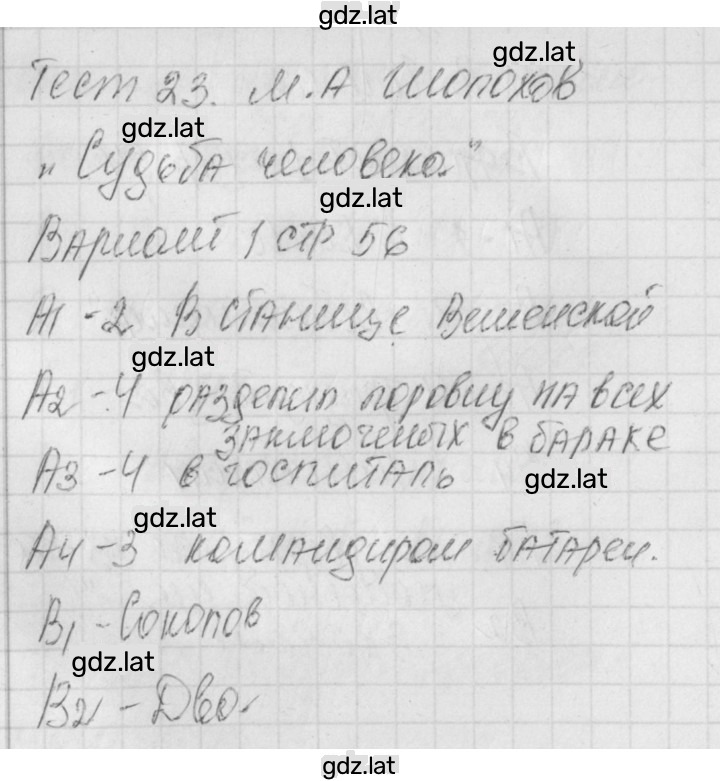 gdz.lat
gdz.lat
Тест 23. М.А Шолохов
gdz.lat
„Судьба человека."
gdz.lat
Вариант 1 стр 56
А1 - 2 В станице Вешенской
gdz.lat
А2 - 4 разделил поровну на всех
заключеных в бараке
А3 - 4 в госпиталь
gdz.lat
gdz.lat
А4 - 3 командиром батареи.
В1 - Соколов
gdz.lat
В2 - Два
gdz.lat